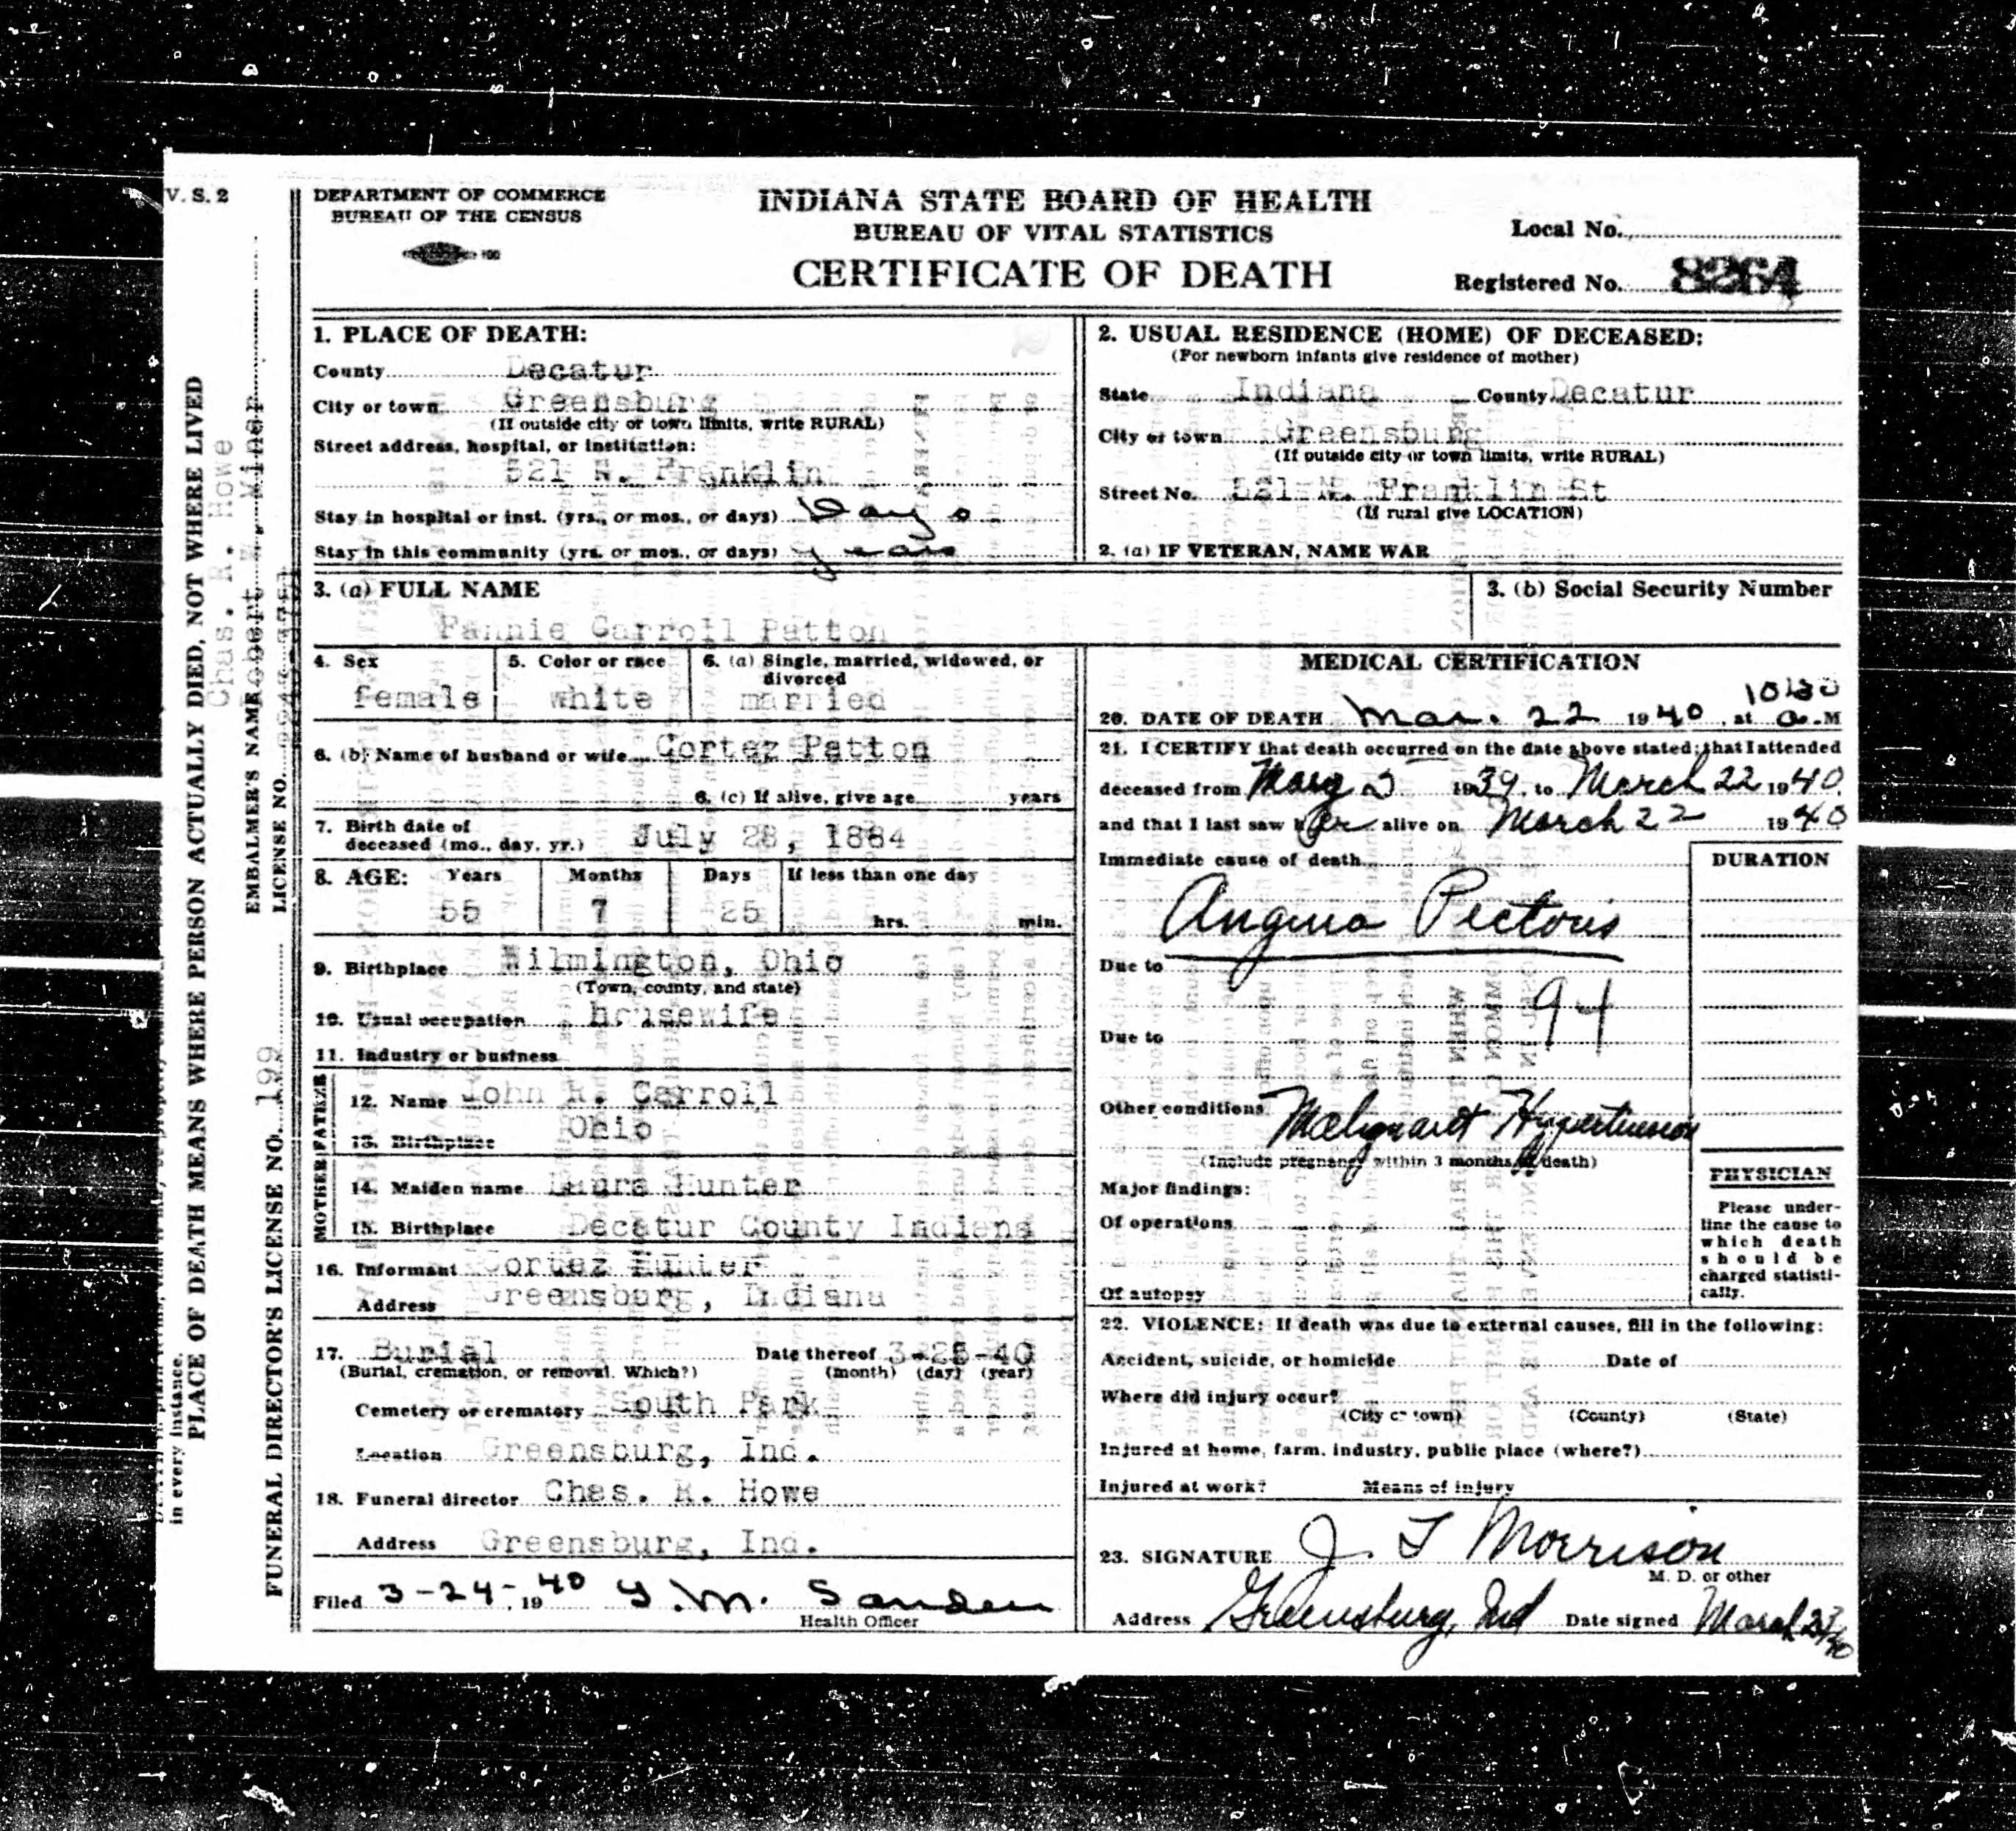 V. S. 2
DEPARTMENT OF COMMERCE
BUREAU OF THE CENSUS
INDIANA STATE BOARD OF HEALTH
BUREAU OF VITAL STATISTICS
CERTIFICATE OF DEATH
Local No.
Registered No. 8264
1. PLACE OF DEATH:
County Decatur
City or town Greensburg
(If outside city or town limits, write RURAL)
Street address, hospital, or institution:
521 N. Franklin
Stay in hospital or inst. (yrs., or mos., or days) Days
Stay in this community (yrs. or mos., or days) years
2. USUAL RESIDENCE (HOME) OF DECEASED:
(For newborn infants give residence of mother)
State Indiana County Decatur
City or town Greensburg
(If outside city or town limits, write RURAL)
Street No. 521 N. Franklin St
(If rural give LOCATION)
2. (a) IF VETERAN, NAME WAR
3. (a) FULL NAME
Fannie Carroll Patton
3. (b) Social Security Number
4. Sex
female
5. Color or race
white
6. (a) Single, married, widowed, or
divorced
married
6. (b) Name of husband or wife Cortez Patton
6. (c) If alive, give age years
7. Birth date of
deceased (mo., day, yr.) July 28, 1884
8. AGE: Years Months Days If less than one day
55 7 25 hrs. min.
9. Birthplace Wilmington, Ohio
(Town, county, and state)
10. Usual occupation housewife
11. Industry or business
FATHER
12. Name John R. Carroll
13. Birthplace Ohio
MOTHER
14. Maiden name Laura Hunter
15. Birthplace Decatur County Indiana
16. Informant Cortez Hunter
Address Greensburg, Indiana
17. Burial Date thereof 3-25-40
(Burial, cremation, or removal. Which?) (month) (day) (year)
Cemetery or crematory South Park
Location Greensburg, Ind.
18. Funeral director Chas. R. Howe
Address Greensburg, Ind.
Filed 3-24-, 19 40
Health Officer
MEDICAL CERTIFICATION
20. DATE OF DEATH Mar. 22 1940, at 10:30 a.M
21. I CERTIFY that death occurred on the date above stated; that I attended
deceased from 1939, to March 22 1940,
and that I last saw her alive on March 22 1940
Immediate cause of death
DURATION
Angina Pectoris
Due to
94
Due to
Other conditions Malignant Hypertension
(Include pregnancy within 3 months of death)
Major findings:
Of operations
Of autopsy
PHYSICIAN
Please under-
line the cause to
which death
should be
charged statisti-
cally.
22. VIOLENCE: If death was due to external causes, fill in the following:
Accident, suicide, or homicide Date of
Where did injury occur?
(City or town) (County) (State)
Injured at home, farm, industry, public place (where?)
Injured at work? Means of injury
23. SIGNATURE J. T Morrison
M. D. or other
Address Greensburg, Ind Date signed March 23/40
in every instance.
PLACE OF DEATH MEANS WHERE PERSON ACTUALLY DIED, NOT WHERE LIVED
Chas. R. Howe
EMBALMER'S NAME Robert
LICENSE NO.
FUNERAL DIRECTOR'S LICENSE NO. 199